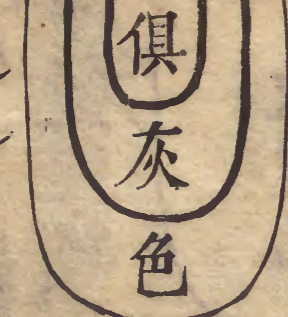 俱
灰
色